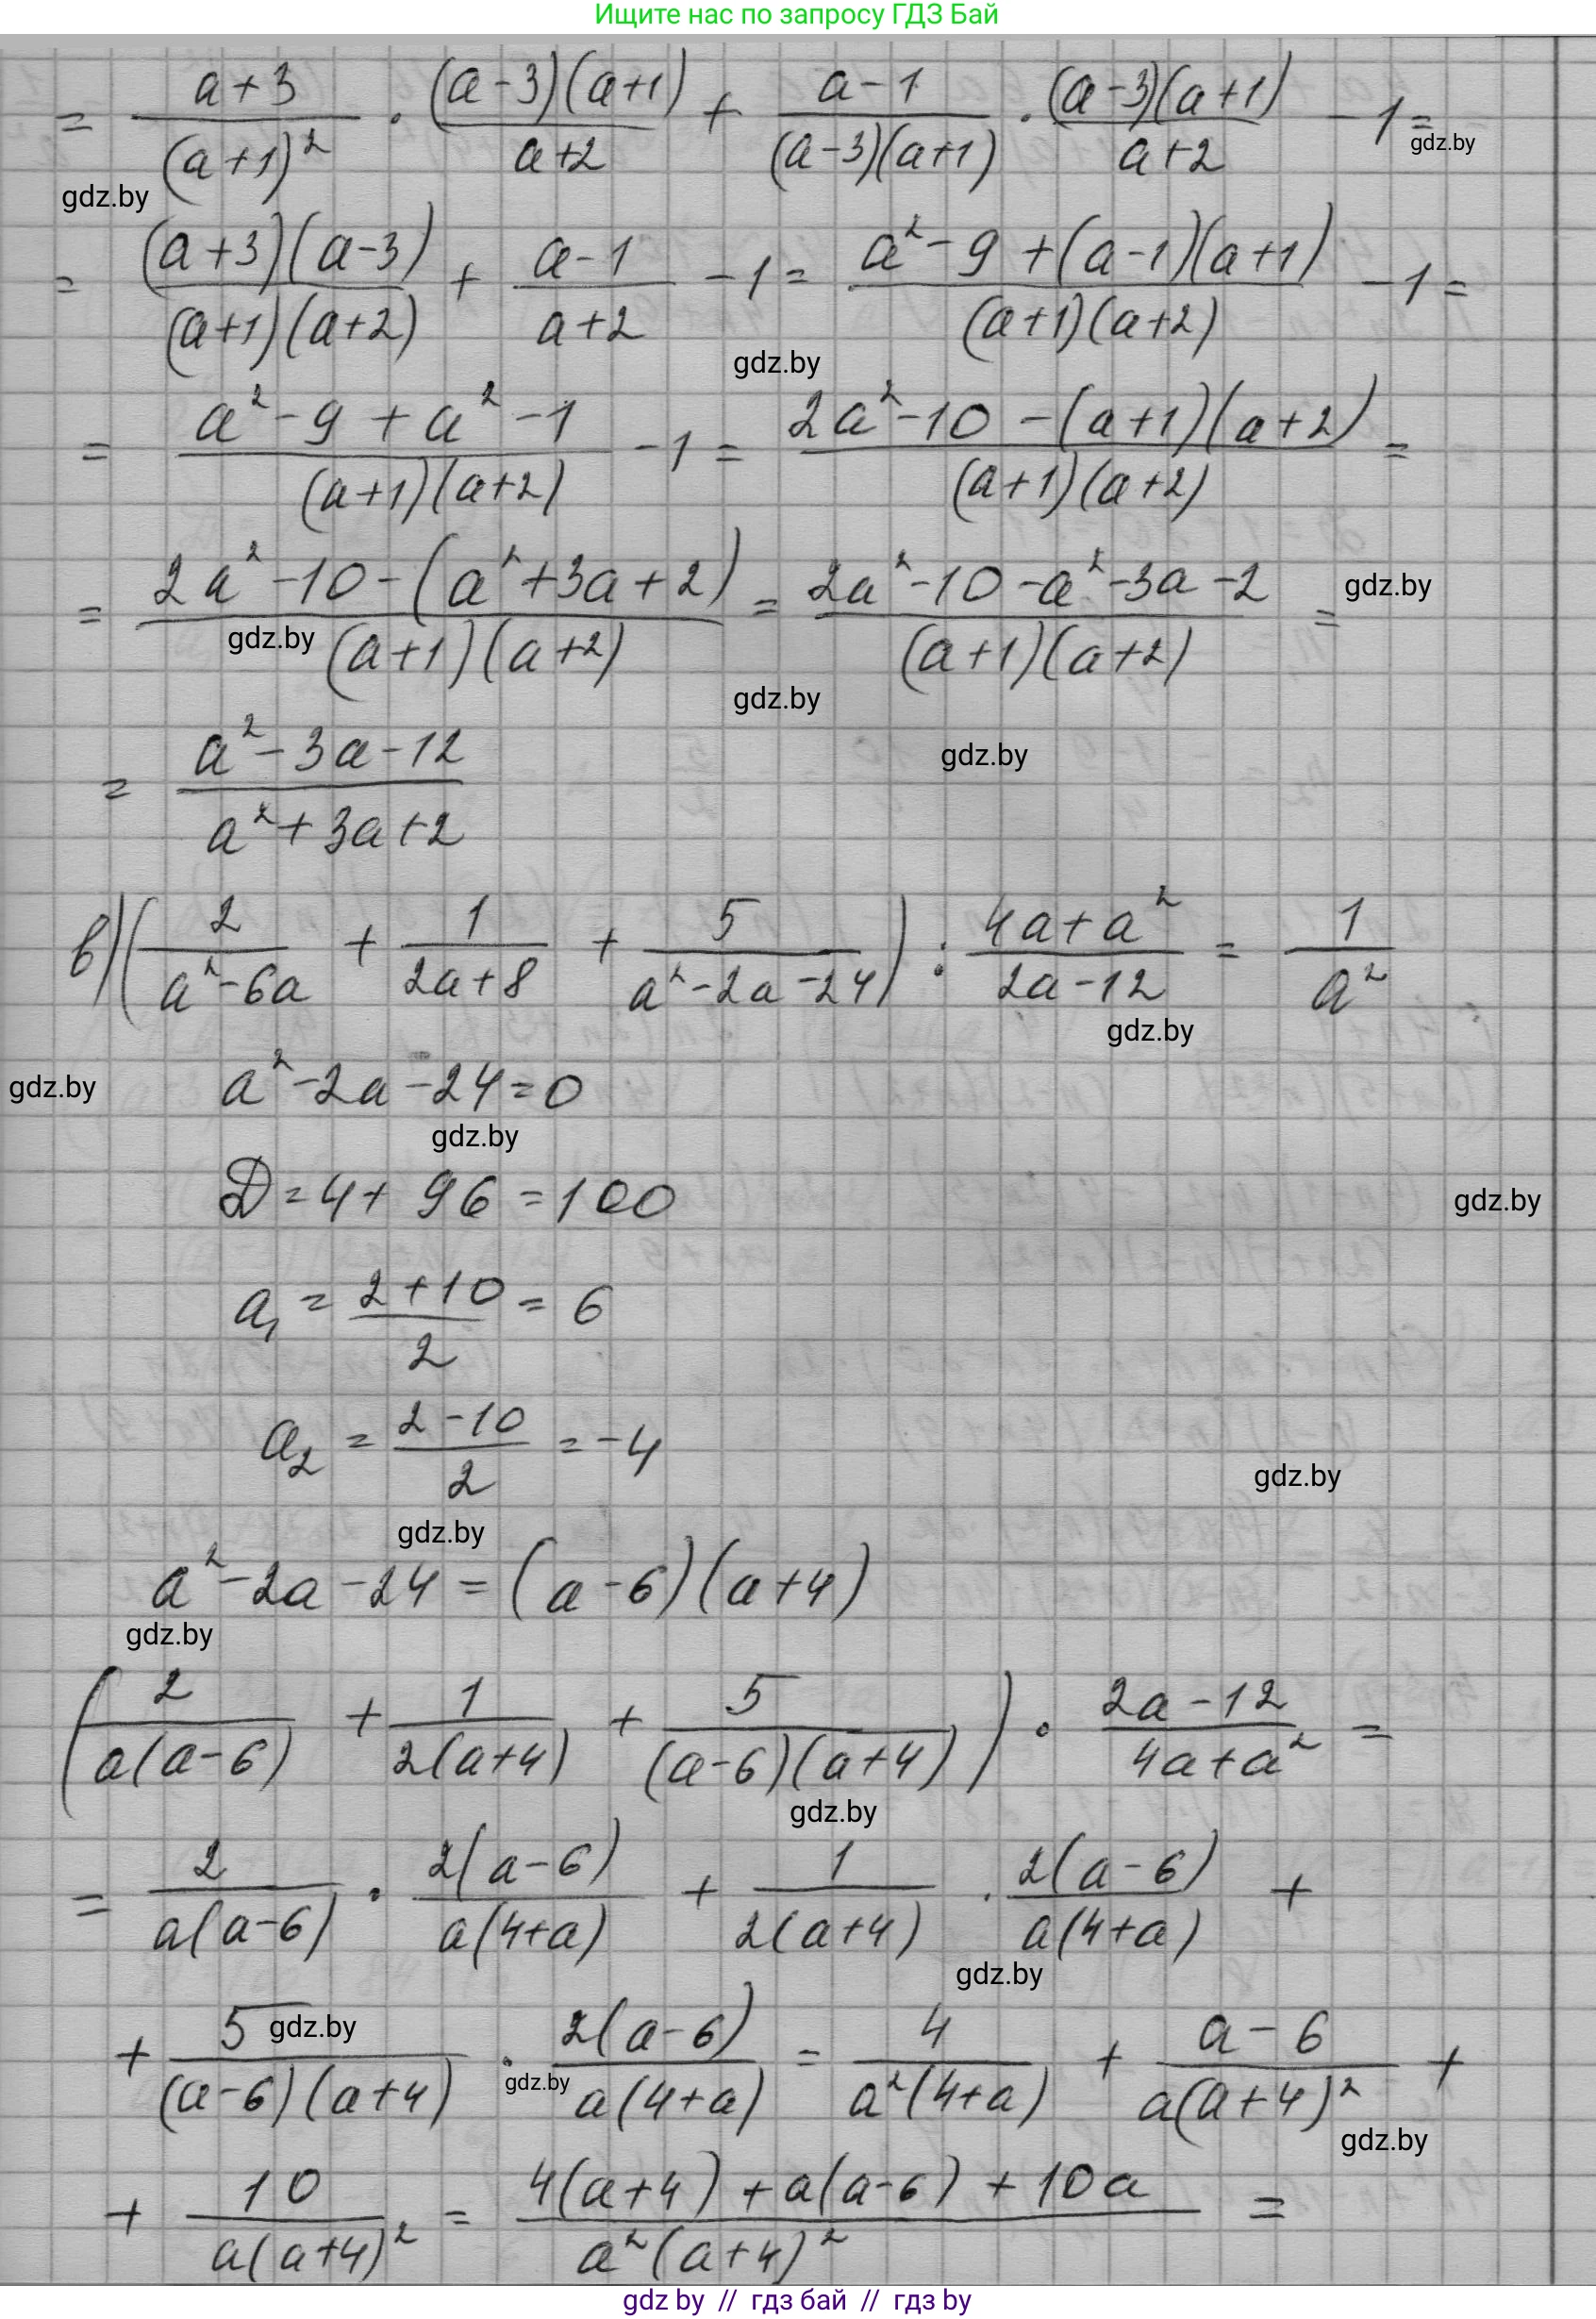 Ищите нас по запросу ГДЗ Бай
= (a+3)/(a+1)² · (a-3)(a+1)/(a+2) + (a-1)/((a-3)(a+1)) · (a-3)(a+1)/(a+2) - 1 =
gdz.by
gdz.by
= (a+3)(a-3)/((a+1)(a+2)) + (a-1)/(a+2) - 1 = (a²-9+(a-1)(a+1))/((a+1)(a+2)) - 1 =
gdz.by
= (a²-9+a²-1)/((a+1)(a+2)) - 1 = (2a²-10-(a+1)(a+2))/((a+1)(a+2)) =
= (2a²-10-(a²+3a+2))/((a+1)(a+2)) = (2a²-10-a²-3a-2)/((a+1)(a+2)) =
gdz.by
gdz.by
gdz.by
= (a²-3a-12)/(a²+3a+2)
gdz.by
в) (2/(a²-6a) + 1/(2a+8) + 5/(a²-2a-24)) : (4a+a²)/(2a-12) = 1/a²
gdz.by
gdz.by
a²-2a-24=0
gdz.by
D=4+96=100
gdz.by
a₁ = (2+10)/2 = 6
a₂ = (2-10)/2 = -4
gdz.by
gdz.by
a²-2a-24=(a-6)(a+4)
gdz.by
(2/(a(a-6)) + 1/(2(a+4)) + 5/((a-6)(a+4))) · (2a-12)/(4a+a²) =
gdz.by
= 2/(a(a-6)) · 2(a-6)/(a(4+a)) + 1/(2(a+4)) · 2(a-6)/(a(4+a)) +
gdz.by
+ 5/((a-6)(a+4)) · 2(a-6)/(a(4+a)) = 4/(a²(4+a)) + (a-6)/(a(a+4)²) +
gdz.by
gdz.by
gdz.by
+ 10/(a(a+4)²) = (4(a+4)+a(a-6)+10a)/(a²(a+4)²) =
gdz by // гдз бай // гдз by